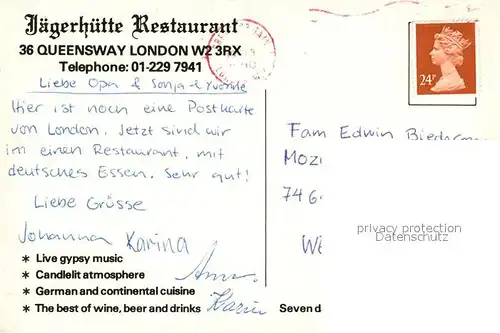 Jägerhütte Restaurant
36 QUEENSWAY LONDON W2 3RX
Telephone: 01-229 7941
24P
Liebe Opa & Sonja & Yvonne
Hier ist noch eine Postkarte
von London. Jetzt sind wir
im einen Restaurant, mit
deutsches Essen. Sehr gut!
Liebe Grüsse
Johanna Karina
Fam Edwin
privacy protection
Datenschutz
* Live gypsy music
* Candlelit atmosphere
* German and continental cuisine
* The best of wine, beer and drinks
Seven d